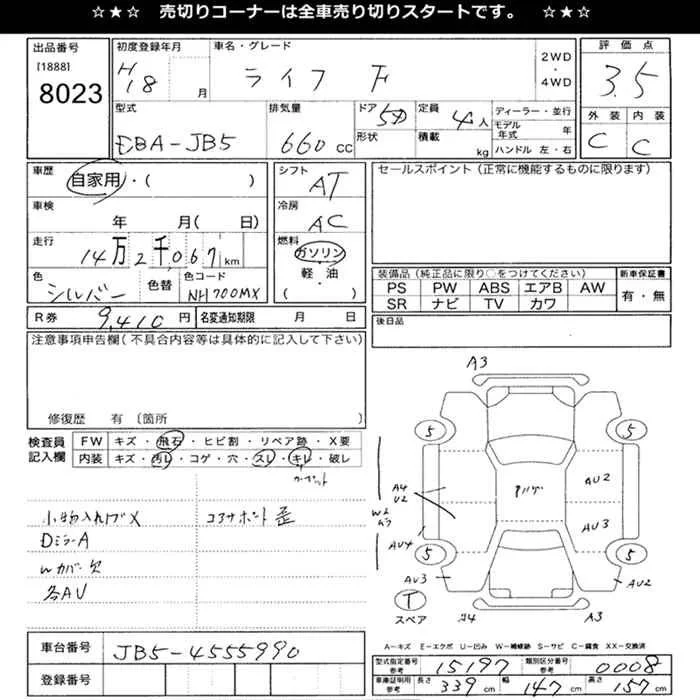 ☆★☆ 売切りコーナーは全車売り切りスタートです。 ☆★☆
出品番号 [1888] 8023
初度登録年月 H18 月
車名・グレード ライフ F
2WD・4WD
評価点 3.5
外装 C 内装 C
型式 EBA-JB5
排気量 660 cc
ドア 5D 形状
定員 4人 積載 kg
ディーラー・並行
モデル年式 年
ハンドル 左・右
車歴 自家用・( )
シフト AT
セールスポイント (正常に機能するものに限ります)
車検 年 月( 日)
冷房 AC
走行 14万2千067km
燃料 ガソリン・軽・油 ( )
色 シルバー 色替 色コード NH700MX
装備品 (純正品に限り○をつけてください) 新車保証書
PS PW ABS エアB AW 有・無
SR ナビ TV カワ
R券 9,410円 名変通知期限 月 日
後日品
注意事項申告欄(不具合内容等は具体的に記入して下さい)
修復歴 有 〔箇所 〕
検査員記入欄
FW キズ・飛石・ヒビ割・リペア跡・X要
内装 キズ・汚レ・コゲ・穴・スレ・キレ・破レ
カーペット
コアサポート歪
DミラーA
Wカバー欠
各AV
A3
5 5
A4 U2 AU2
W2
AU4 AU3
5 5
AU3 AU2
T スペア
A3
A-キズ E-エクボ U-凹み W-補修跡 S-サビ C-腐食 XX-交換済
車台番号 JB5-4555990
登録番号
型式指定番号 参考 15197 類別区分番号 参考 0008
車庫証明用 参考 長さ 339 cm 幅 147 cm 高さ 157 cm